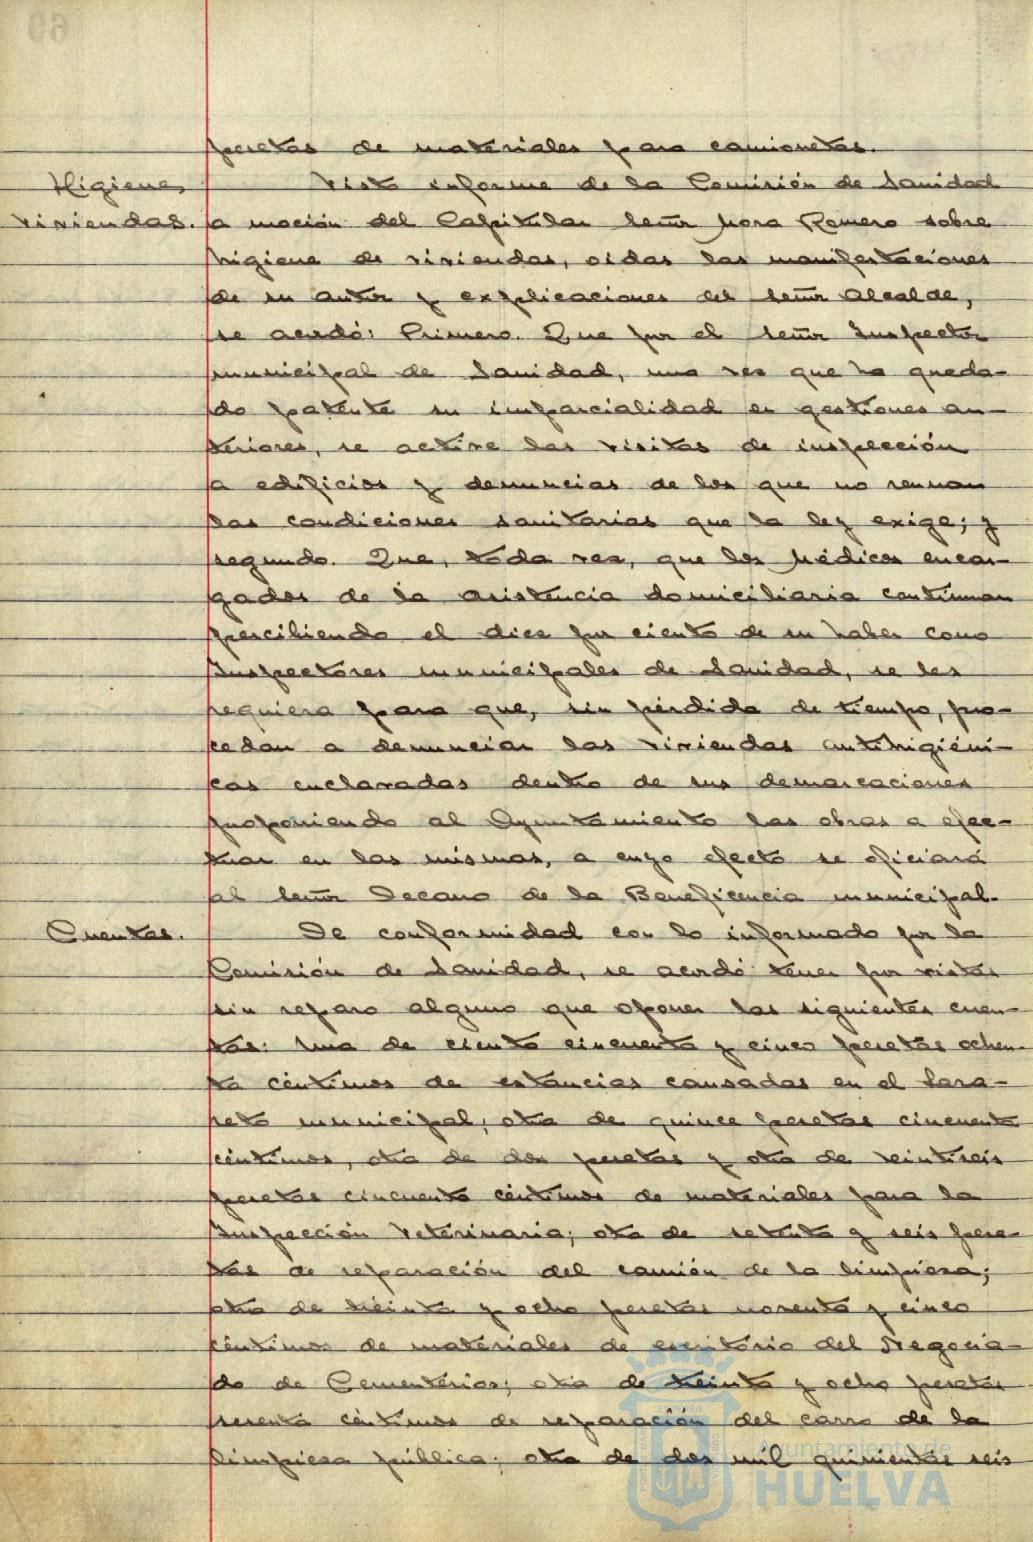 pesetas de materiales para camionetas.
Higiene
viviendas.
Visto informe de la Comisión de Sanidad
a moción del Capitular Señor Mora Romero sobre
higiene de viviendas, oidas las manifestaciones
de su autor y explicaciones del Señor Alcalde,
se acordó: Primero. Que por el Señor Inspector
municipal de Sanidad, una vez que ha queda-
do patente su imparcialidad en gestiones an-
teriores, se active las visitas de inspección
a edificios y denuncias de los que no reunan
las condiciones sanitarias que la ley exige; y
segundo. Que, toda vez, que los Médicos encar-
gados de la asistencia domiciliaria continuan
percibiendo el diez por ciento de su haber como
Inspectores municipales de Sanidad, se les
requiera para que, sin pérdida de tiempo, pro-
cedan a denunciar las viviendas antihigiéni-
cas enclavadas dentro de sus demarcaciones
proponiendo al Ayuntamiento las obras a efec-
tuar en las mismas, a cuyo efecto se oficiará
al Señor Decano de la Beneficencia municipal.
Cuentas.
De conformidad con lo informado por la
Comisión de Sanidad, se acordó tener por vistas
sin reparo alguno que oponer las siguientes cuen-
tas: Una de ciento cincuenta y cinco pesetas ochen-
ta céntimos de estancias causadas en el Laza-
reto municipal; otra de quince pesetas cincuenta
céntimos, otra de dos pesetas y otra de veintiseis
pesetas cincuenta céntimos de materiales para la
Inspección Veterinaria; otra de setenta y seis pese-
tas de reparación del camión de la limpieza;
otra de treinta y ocho pesetas noventa y cinco
céntimos de materiales de escritorio del Negocia-
do de Cementerios; otra de treinta y ocho pesetas
sesenta céntimos de reparación del carro de la
limpieza pública; otra de dos mil quinientas seis
Ayuntamiento de
HUELVA